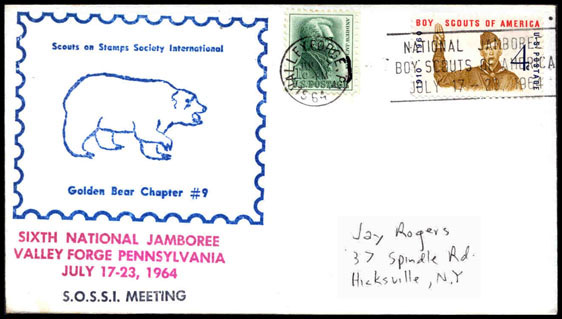 Scouts on Stamps Society International
Golden Bear Chapter #9
SIXTH NATIONAL JAMBOREE
VALLEY FORGE PENNSYLVANIA
JULY 17-23, 1964
S.O.S.S.I. MEETING
U.S. POSTAGE
VALLEY FORGE
1964
BOY SCOUTS OF AMERICA
1910 1960
4c
U.S. POSTAGE
NATIONAL JAMBOREE
BOY SCOUTS OF AMERICA
JULY 17
Jay Rogers
37 Spindle Rd.
Hicksville, N.Y